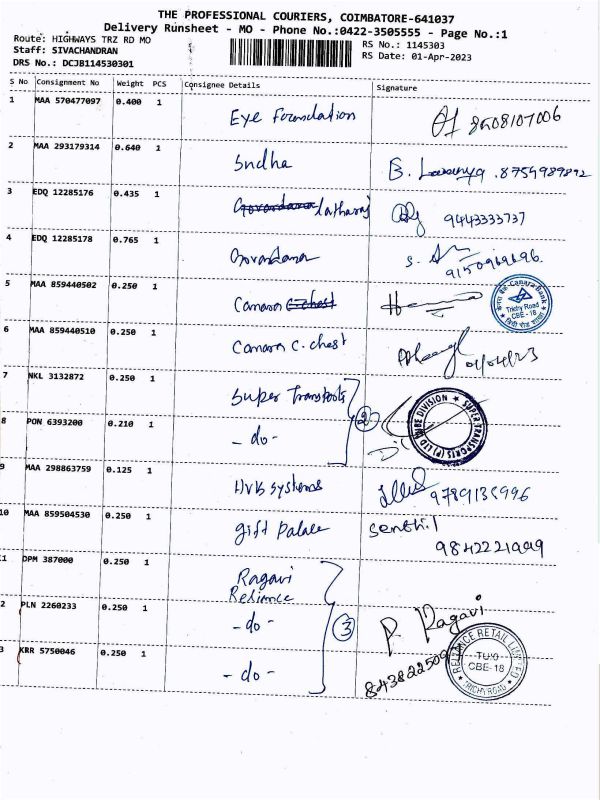 THE PROFESSIONAL COURIERS, COIMBATORE-641037
Delivery Runsheet - MO - Phone No.:0422-3505555 - Page No.:1
Route: HIGHWAYS TRZ RD MO
RS No.: 1145303
Staff: SIVACHANDRAN
RS Date: 01-Apr-2023
DRS No.: DCJB114530301
S No Consignment No Weight PCS Consignee Details Signature
1 MAA 570477097 0.400 1 Eye Foundation 8508107006
2 MAA 293179314 0.640 1 Sudha B. Lavanya .8754989892
3 EDQ 12285176 0.435 1 9443333737
4 EDQ 12285178 0.765 1 Govardana S.
5 MAA 859440502 0.250 1 Canara C-chest
Canara Bank
Trichy Road
CBE - 18
6 MAA 859440510 0.250 1 Canara C. chest 01/04/23
7 NKL 3132872 0.250 1 Super Transports
SUPER TRANSPORTS (P) LTD
DIVISION
8 PON 6393200 0.210 1 - do - 2
9 MAA 298863759 0.125 1 HVB Systems 9789135996
10 MAA 859504530 0.250 1 gift Palace Senthil
9842221999
1 DPM 387000 0.250 1 Ragavi
Reliance
2 PLN 2260233 0.250 1 - do - 3 R Ragavi
3 KRR 5750046 0.250 1 - do -
RELIANCE RETAIL LIMITED
CBE-18
TRICHY ROAD